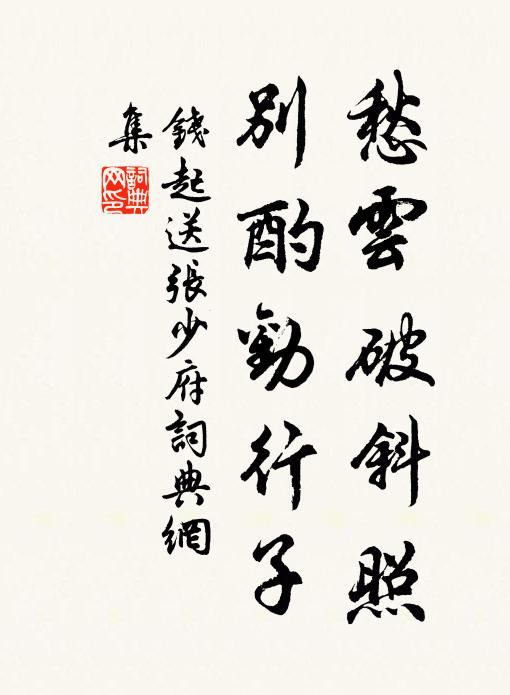 愁雲破斜照
別酌勸行子
錢起送張少府詞典網
集
詞典网印